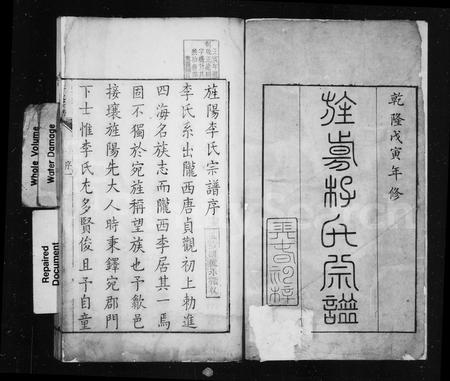 乾隆戊寅年修
旌陽李氏宗譜
旌陽李氏宗譜序
李氏系出隴西唐貞觀初上勅進
四海名族志而隴西李居其一焉
固不獨於宛旌稱望族也予歙邑
接壤旌陽先大人時秉鐸宛郡門
下士惟李氏尤多賢俊且予自童
序
Whole Volume
Water Damage
Repaired
Document